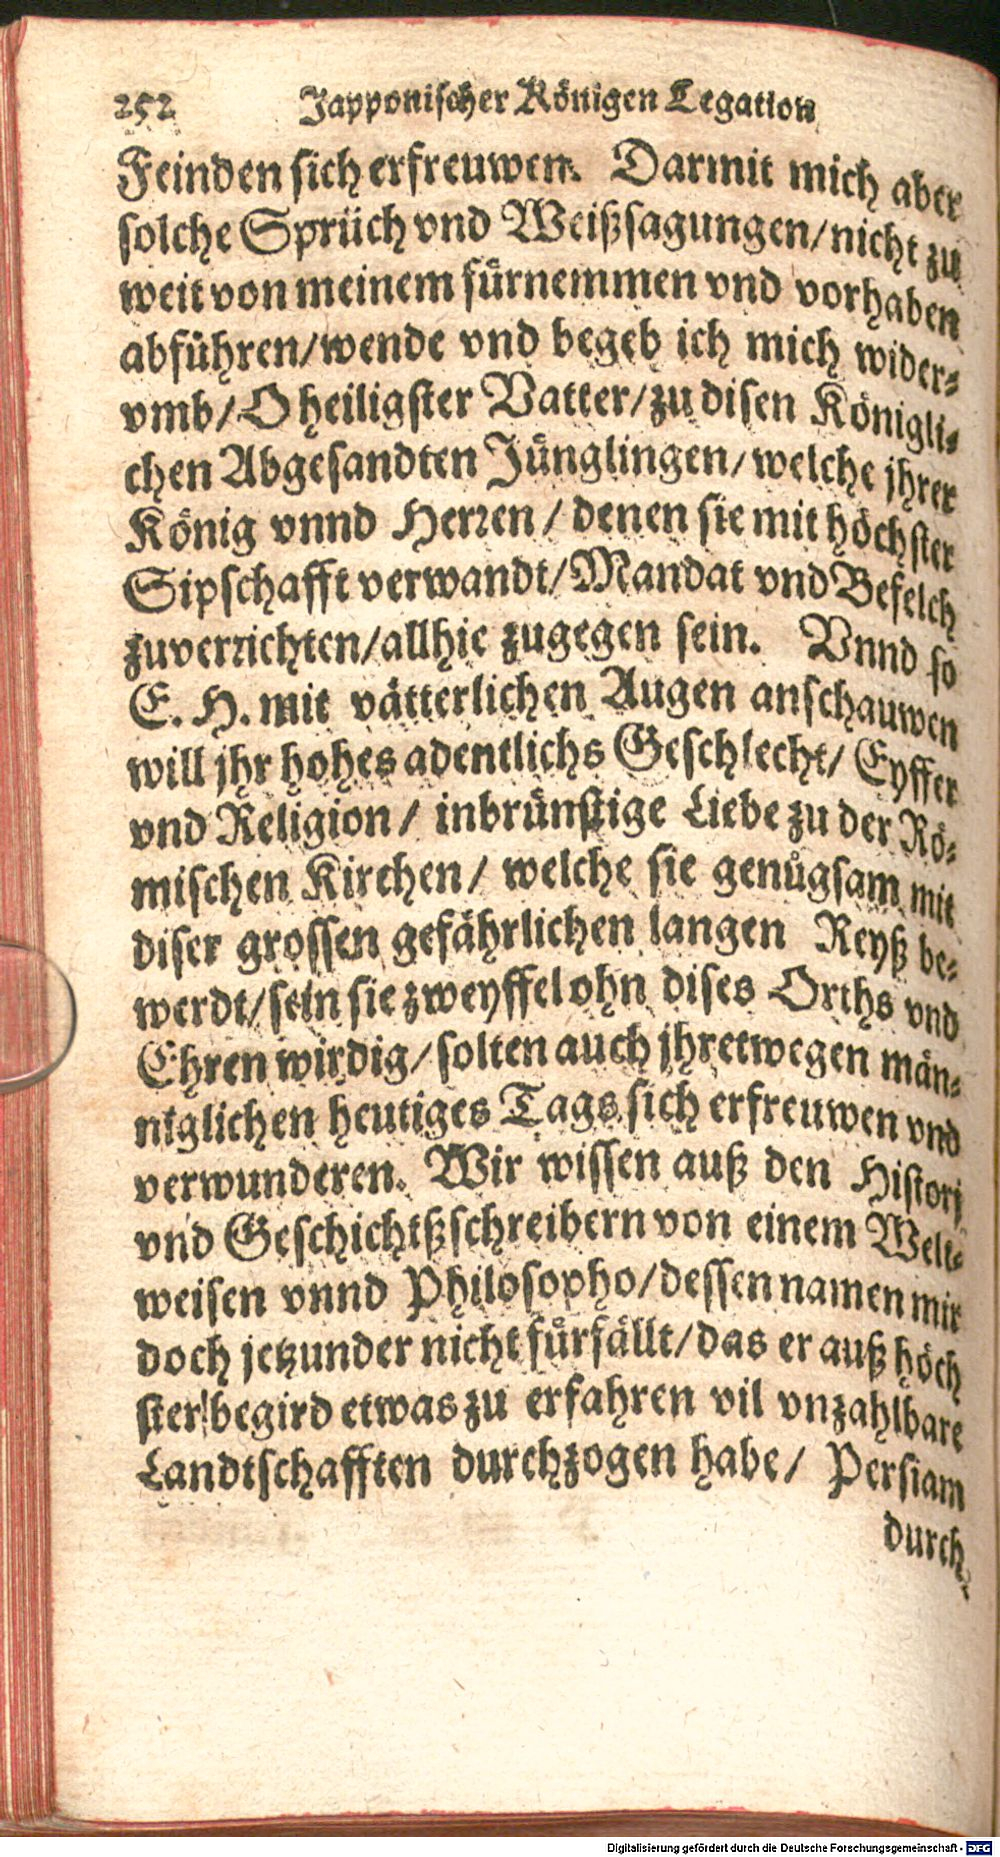 252 Japponischer Königen Legation
Feinden sich erfreuwen. Darmit mich aber
solche Sprüch vnd Weißsagungen/ nicht zu
weit von meinem fürnemmen vnd vorhaben
abführen/ wende vnd begeb ich mich wider-
vmb/ O heiligster Vatter/ zu disen Königli-
chen Abgesandten Jünglingen/ welche jhrer
König vnnd Herren / denen sie mit höchster
Sipschafft verwandt/ Mandat vnd Befelch
zuverrichten/ allhie zugegen sein. Vnnd so
E. H. mit vätterlichen Augen anschauwen
will jhr hohes adentlichs Geschlecht/ Eyffer
vnd Religion / inbrünstige Liebe zu der Rö-
mischen Kirchen/ welche sie genůgsam mit
diser grossen gefährlichen langen Reyß be-
werdt/ sein sie zweyffel ohn dises Orths vnd
Ehren wirdig/ solten auch jhretwegen män-
niglichen heutiges Tags sich erfreuwen vnd
verwunderen. Wir wissen auß den Historj
vnd Geschichtßschreibern von einem Welt-
weisen vnnd Philosopho/ dessen namen mir
doch jetzunder nicht fürfällt/ das er auß höch
ster begird etwas zu erfahren vil vnzahlbare
Landtschafften durchzogen habe/ Persiam
durch-
Digitalisierung gefördert durch die Deutsche Forschungsgemeinschaft - DFG